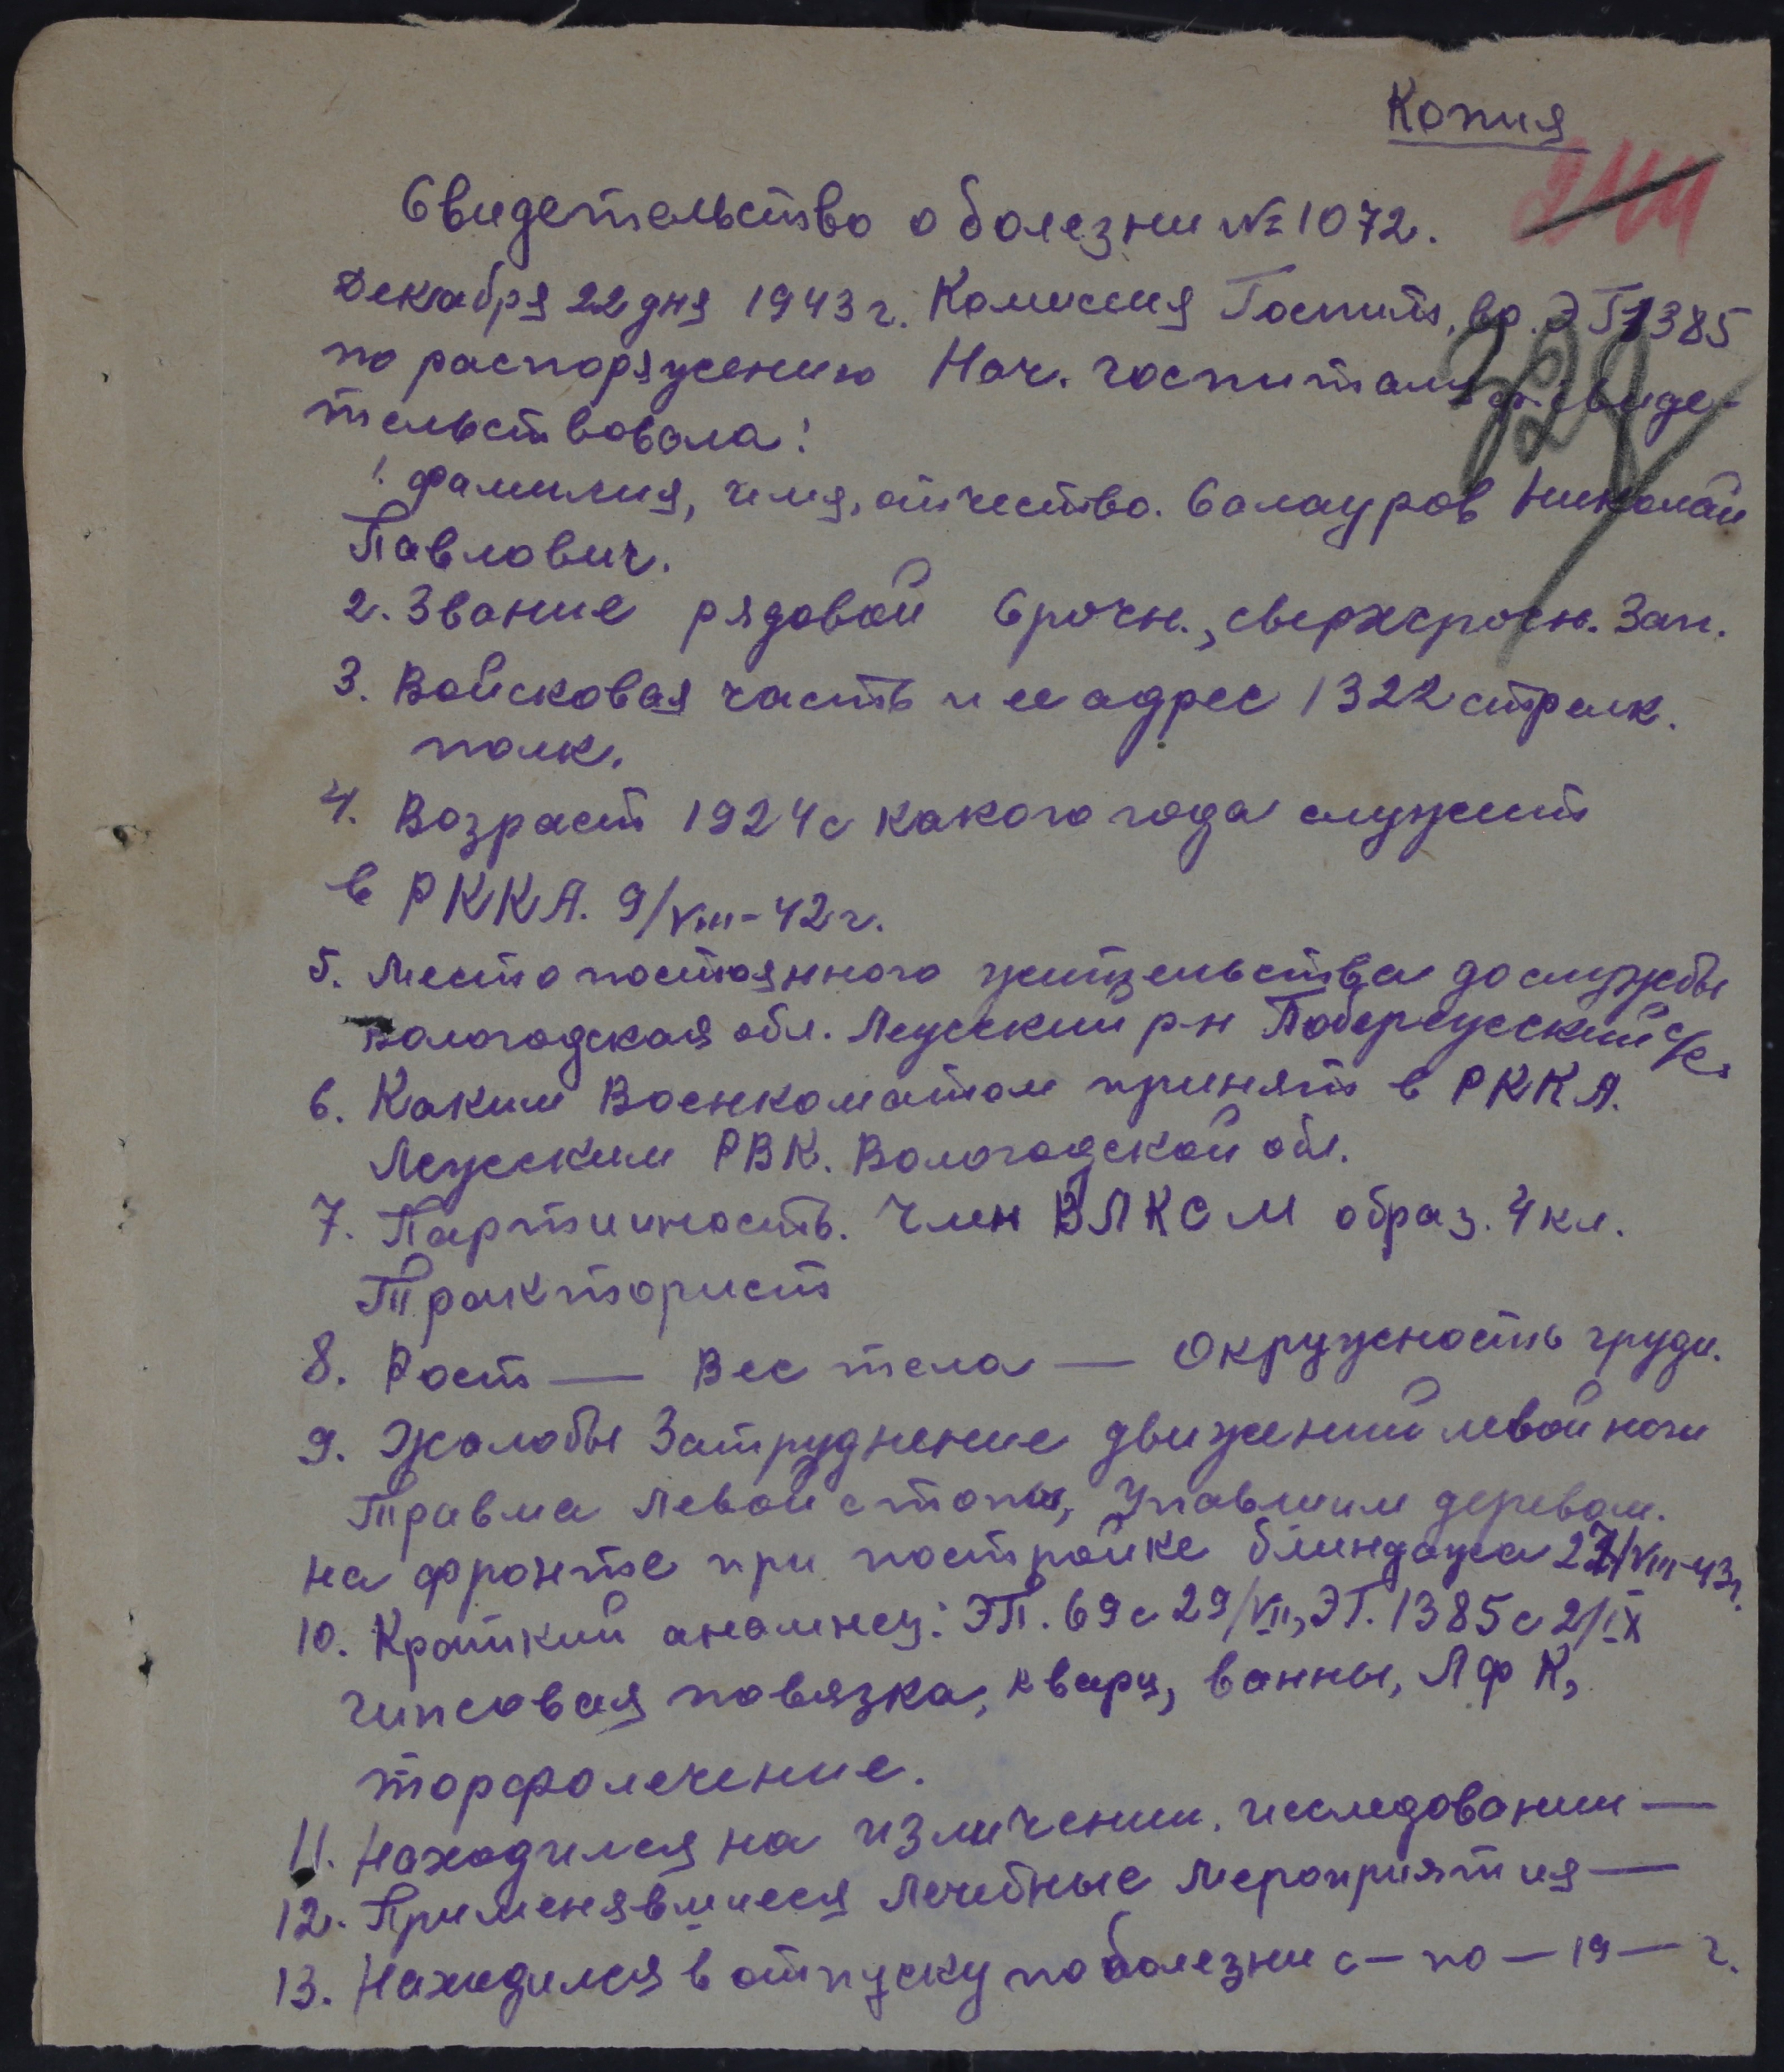 Копия
244
Свидетельство о болезни № 1072.
Декабря 22 дня 1943 г. Комиссия Госпит. ЭГ 1385
по распоряжению Нач. госпиталя освиде-
тельствовала:
1. Фамилия, имя, отчество. Салауров Николай
Павлович.
2. Звание рядовой Срочн., сверхсрочн. Зап.
3. Войсковая часть и ее адрес 1322 стрелк.
полк.
4. Возраст 1924 с какого года служит
в РККА. 9/VIII-42 г.
5. Место постоянного жительства до службы
Вологодская обл. Лежский р-н с/с.
6. Каким Военкоматом принят в РККА.
Лежским РВК. Вологодской обл.
7. Партийность. Член ВЛКСМ образ. 4 кл.
Тракторист
8. Рост — Вес тела — Окружность груди.
9. Жалобы Затруднение движений левой ноги
Травма левой стопы, упавшим деревом.
на фронте при постройке блиндажа 27/VIII-43 г.
10. Краткий анамнез: ЭП. 69 с 29/VII, ЭГ. 1385 с 2/IX
гипсовая повязка, кварц, ванны, ЛФК,
торфолечение.
11. Находился на изличении, исследовании —
12. Применявшиеся лечебные мероприятия —
13. Находился в отпуску по болезни с — по — 19 — г.